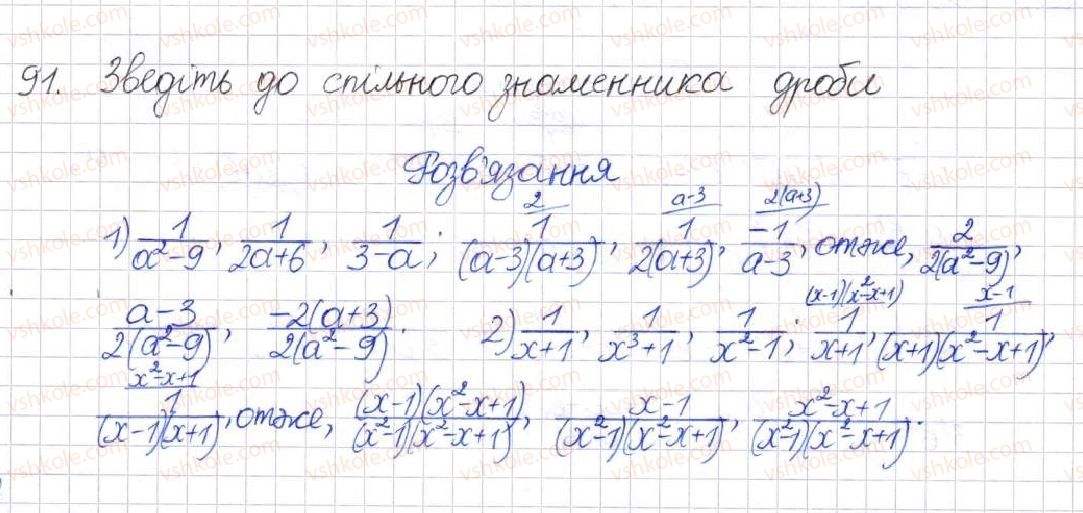 91. Зведіть до спільного знаменника дроби
Розв'язання
1) 1/(a²-9), 1/(2a+6), 1/(3-a); 1/((a-3)(a+3)) (2), 1/(2(a+3)) (a-3), -1/(a-3) (2(a+3)), отже, 2/(2(a²-9)),
(a-3)/(2(a²-9)), -2(a+3)/(2(a²-9)). 2) 1/(x+1), 1/(x³+1), 1/(x²-1); 1/(x+1) ((x-1)(x²-x+1)), 1/((x+1)(x²-x+1)) (x-1),
1/((x-1)(x+1)) (x²-x+1), отже, (x-1)(x²-x+1)/((x²-1)(x²-x+1)), (x-1)/((x²-1)(x²-x+1)), (x²-x+1)/((x²-1)(x²-x+1)).